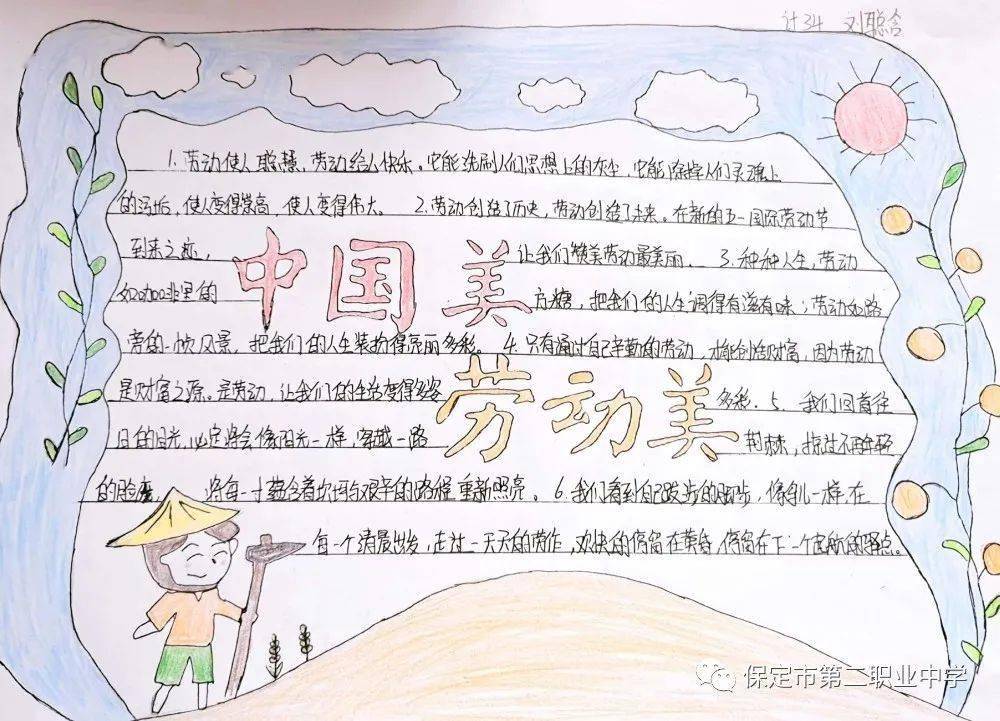 计34 刘聪含
1.劳动使人聪慧,劳动给人快乐。它能洗刷人们思想上的灰尘,它能除掉人们灵魂上
的污垢,使人变得崇高,使人变得伟大。 2.劳动创造了历史,劳动创造了未来。在新的五一国际劳动节
到来之际, 让我们赞美劳动最美丽. 3.种种人生,劳动
如咖啡里的 方糖,把我们的人生调得有滋有味;劳动如路
中国美
旁的一帧风景,把我们的人生装扮得亮丽多彩。 4.只有通过自己辛勤的劳动,才能创造财富,因为劳动
是财富之源。是劳动,让我们的生活变得多姿 多彩. 5.我们回首往
日的目光,必定将会像阳光一样,穿越一路 荆棘,掠过不再年轻
劳动美
的脸庞, 将每一寸蕴含着坎坷与艰辛的路程重新照亮。 6.我们看到自己跋涉的脚步,像鸟儿一样在
每一个清晨出发,走过一天天的劳作,欢快的停留在黄昏,停留在下一个起航的驿点。
保定市第二职业中学